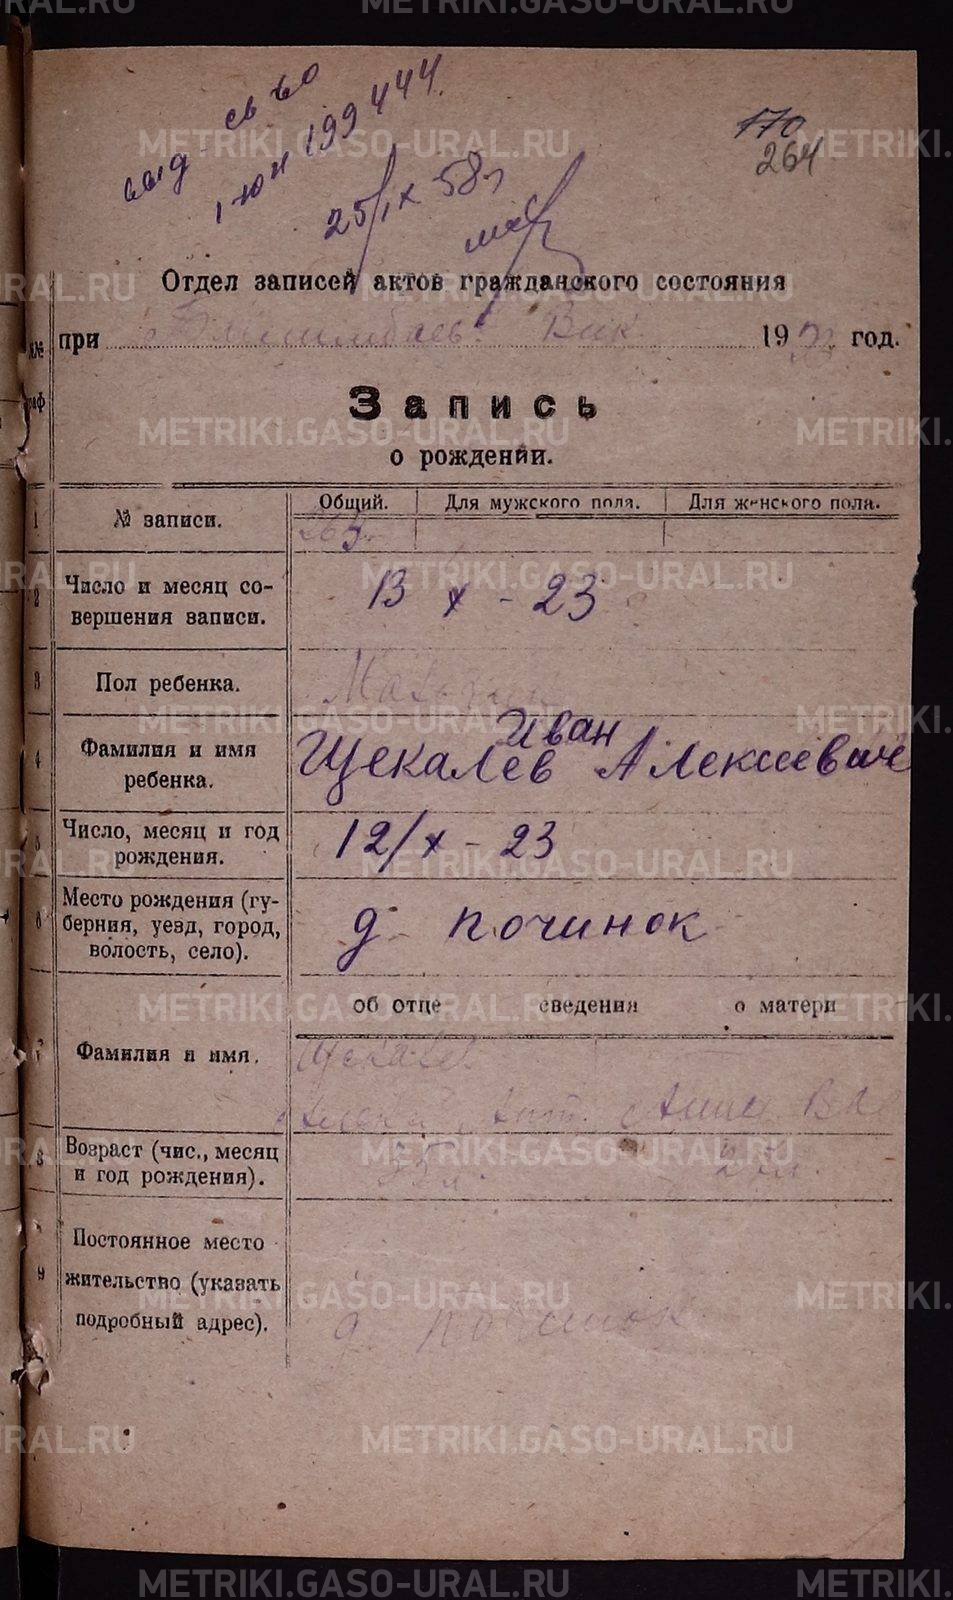 выд. св во
1 юн 199444.
25/IX 58г
170
264
Отдел записей актов гражданского состояния
при Вик. 1923 год.
№№
граф
Запись
о рождении.
1 № записи. Общий. Для мужского пола. Для женского пола.
263
2 Число и месяц со-
вершения записи. 13 X - 23
3 Пол ребенка.
4 Фамилия и имя
ребенка. Щекалев Иван Алексиевич
5 Число, месяц и год
рождения. 12/X - 23
6 Место рождения (гу-
берния, уезд, город,
волость, село). д. починок
об отце сведения о матери
7 Фамилия и имя. Щекалев
Алексей Ант. Анна
8 Возраст (чис., месяц
и год рождения). 35 л. 27 л.
9 Постоянное место
жительство (указать
подробный адрес). д. починок
METRIKI.GASO-URAL.RU